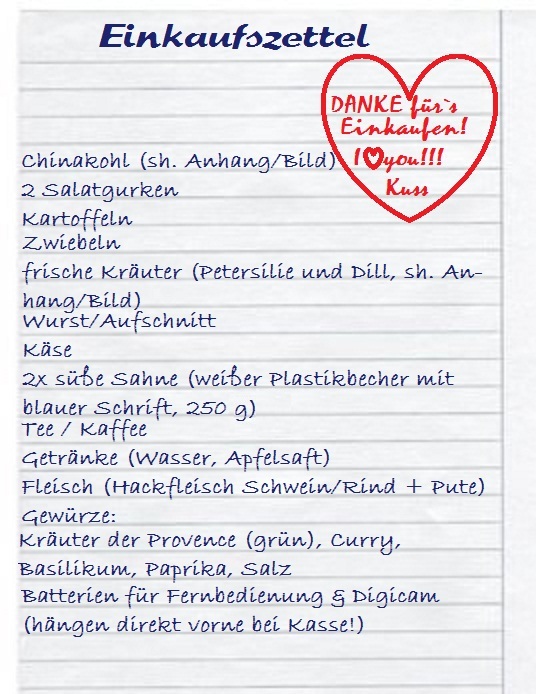 Einkaufszettel
DANKE für`s
Einkaufen!
I ♥ you!!!
Kuss
Chinakohl (sh. Anhang/Bild)
2 Salatgurken
Kartoffeln
Zwiebeln
frische Kräuter (Petersilie und Dill, sh. An-
hang/Bild)
Wurst/Aufschnitt
Käse
2x süße Sahne (weißer Plastikbecher mit
blauer Schrift, 250 g)
Tee / Kaffee
Getränke (Wasser, Apfelsaft)
Fleisch (Hackfleisch Schwein/Rind + Pute)
Gewürze:
Kräuter der Provence (grün), Curry,
Basilikum, Paprika, Salz
Batterien für Fernbedienung & Digicam
(hängen direkt vorne bei Kasse!)